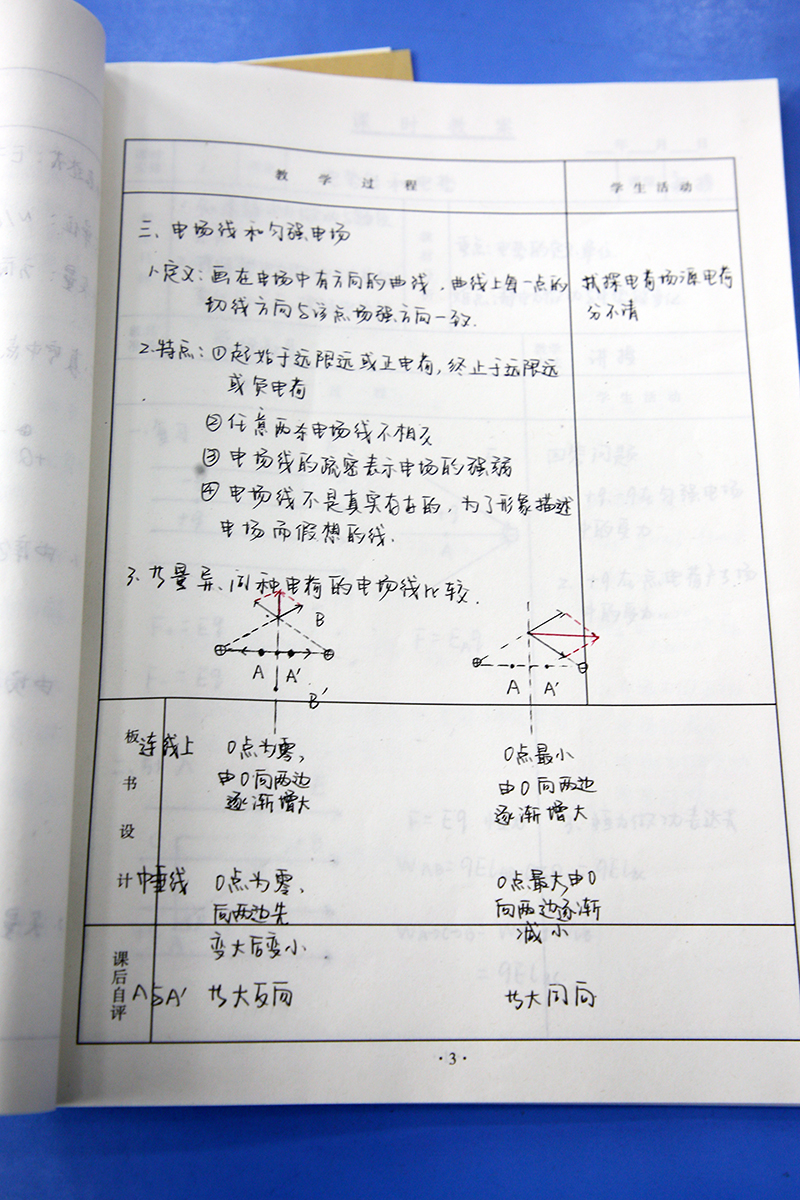 教 学 过 程
学 生 活 动
三、电场线和匀强电场
1.定义：画在电场中有方向的曲线，曲线上每一点的
切线方向与该点场强方向一致.
电荷场源电荷
分不清
2.特点：①起始于远限远或正电荷，终止于远限远
或负电荷
②任意两条电场线不相交
③电场线的疏密表示电场的强弱
④电场线不是真实存在的，为了形象描述
电场而假想的线.
3.等量异、同种电荷的电场线比较.
B
A A'
B'
A A'
板书设计
连线上
0点为零，
由0向两边
逐渐增大
0点最小
由0向两边
逐渐增大
中垂线
0点为零，
向两边先
变大后变小.
0点最大,由0
向两边逐渐
减小
课后自评
A与A'
等大反向
等大同向
·3·